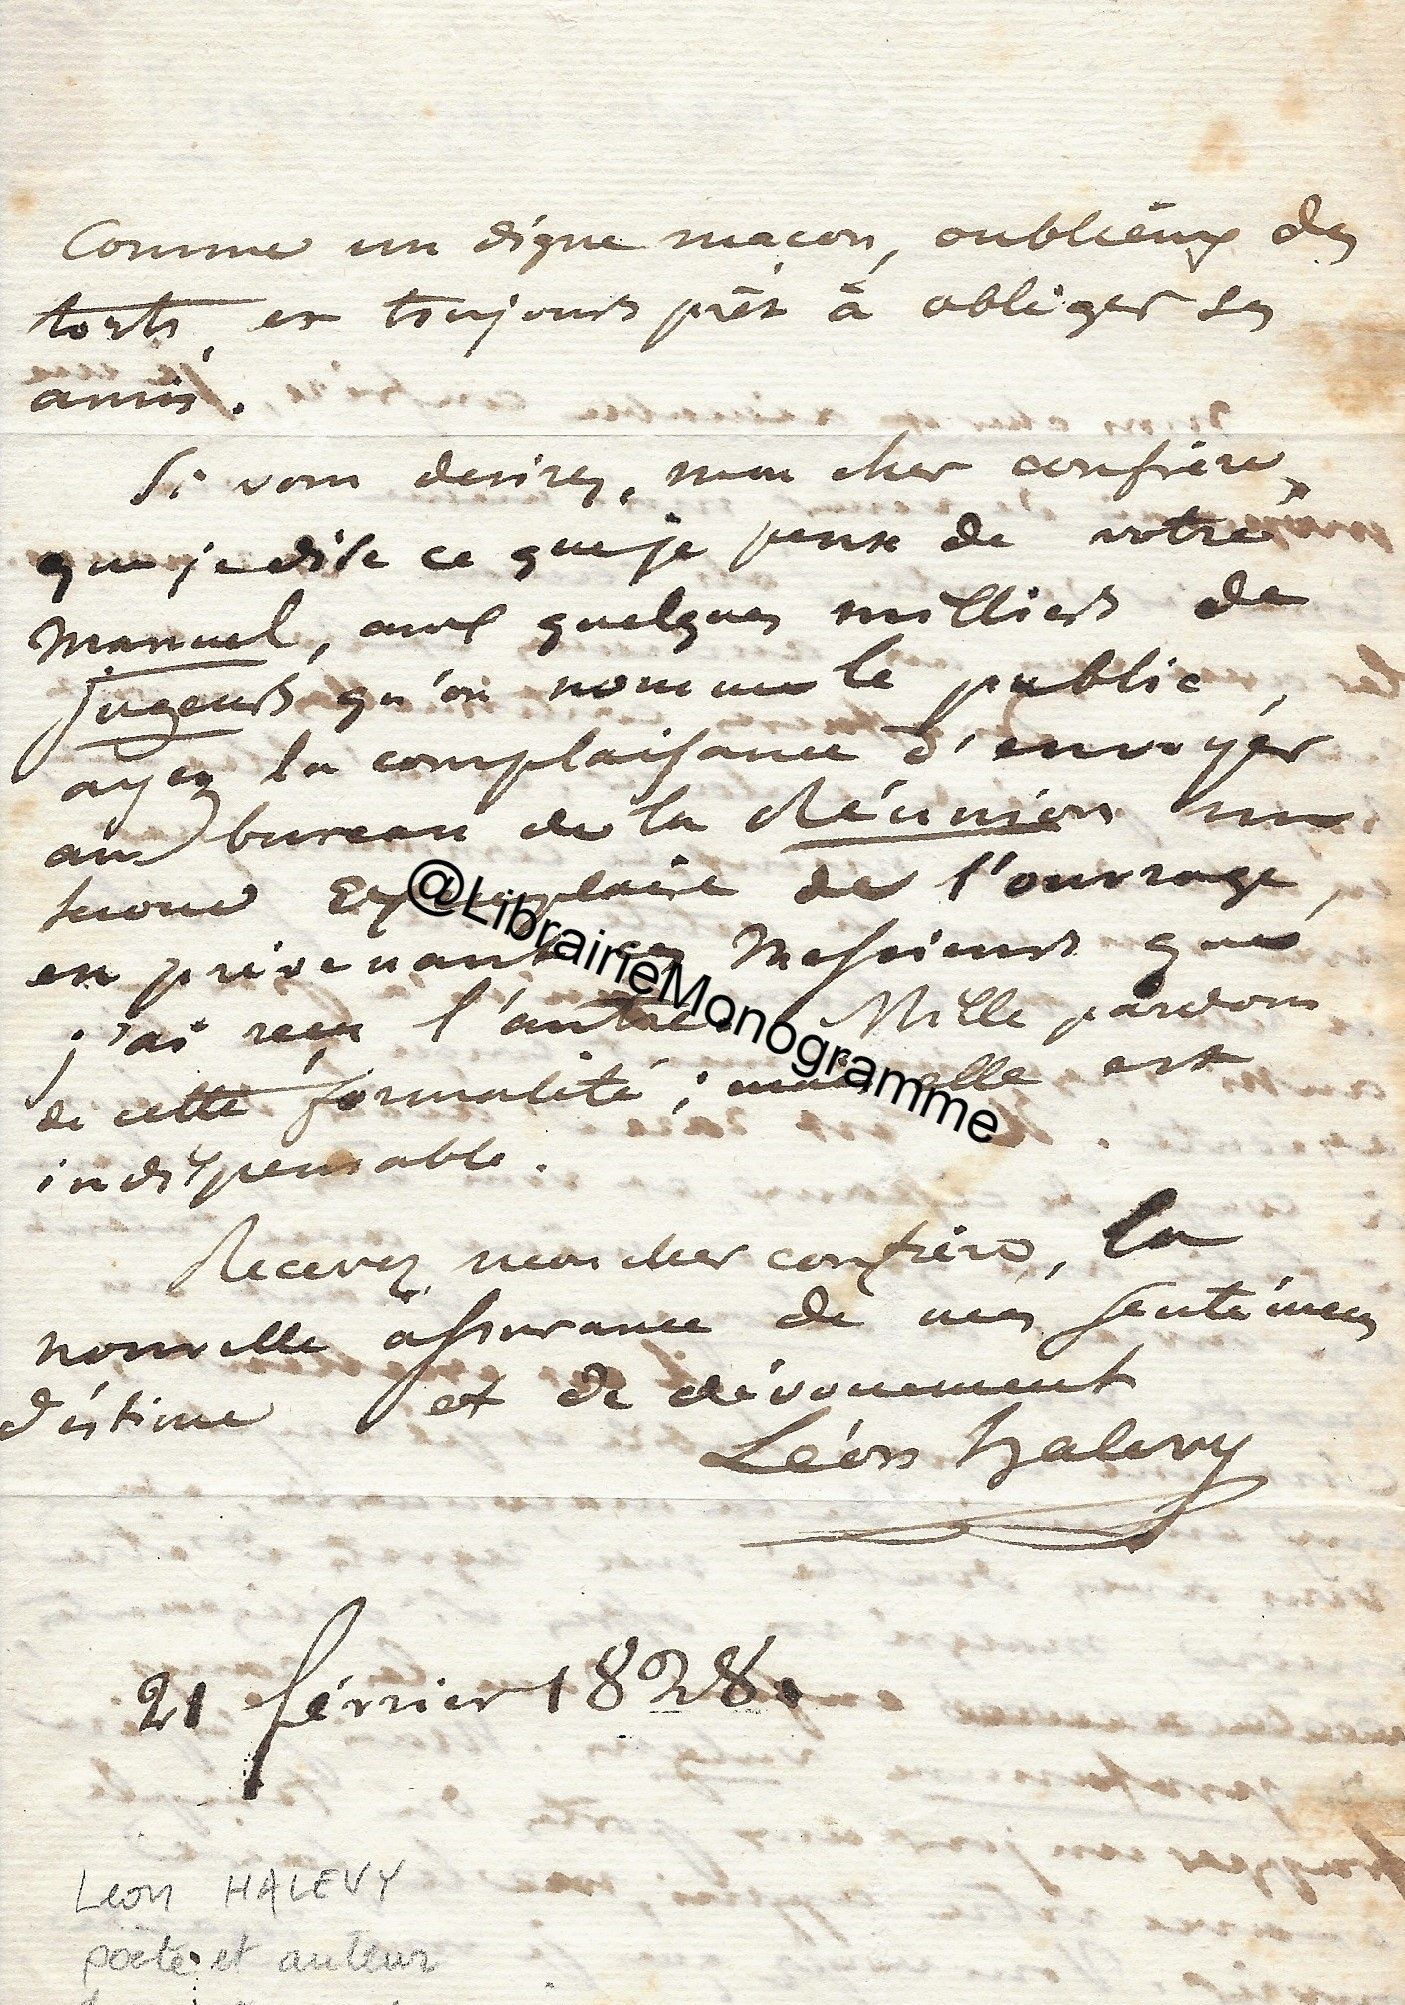 Comme un digne maçon, oublieux des
torts, et toujours prêt à obliger ses
amis.
Si vous desirez, mon cher confrère,
que je dise ce que je pense de votre
Manuel, aux quelques milliers de
jugeurs qu'on nomme le public,
ayez la complaisance d'envoyer
au bureau de la Réunion un
second Exemplaire de l'ouvrage,
en prévenant ces Messieurs que
j'ai reçu l'autre. Mille pardons
de cette formalité ; mais elle est
indispensable.
Recevez, mon cher confrère, la
nouvelle assurance de mes sentimens
d'éstime et de dévouement
Léon halevy
21 février 1828.
Léon HALEVY
poète et auteur
@LibrairieMonogramme